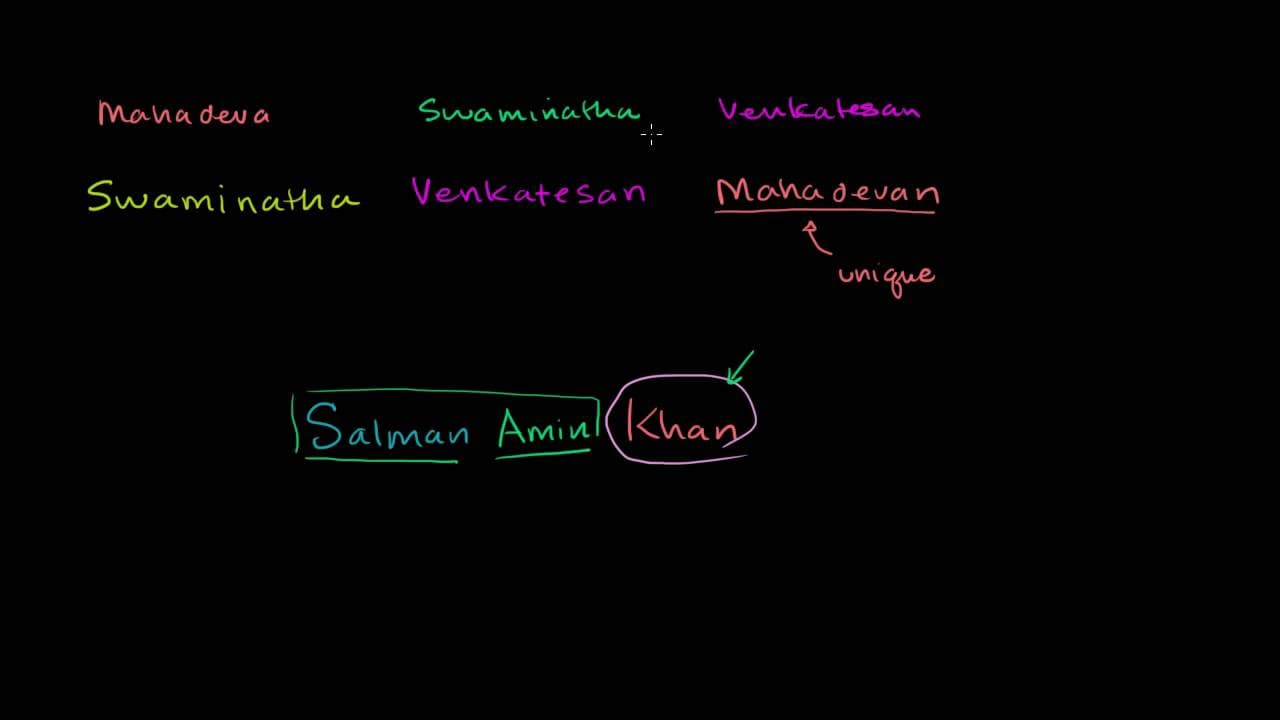 Mahadeva Swaminatha Venkatesan
Swaminatha Venkatesan Mahadevan
unique
Salman Amin Khan